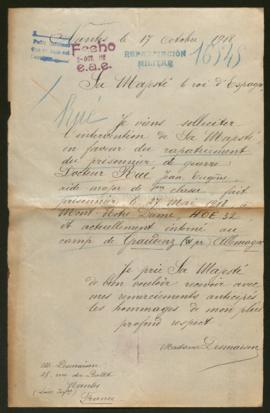 Nantes le 17 Octobre 1918
Fecho
E.A.E.
REPATRIACIÓN
MILITAR
16545
Sa Majesté le roi d'Espagne
Je viens solliciter
l'intervention de Sa Majesté
en faveur du rapatriement
du prisonnier de guerre
Docteur Jean Eugène
aide major de 1ère classe fait
prisonnier le 27 Mai 1918 à
Mont Notre Dame HOE 32
et actuellement interné au
camp de Graudenz Allemagne
Je prie Sa Majesté
de bien vouloir recevoir avec
mes remerciements anticipés
les hommages de mon plus
profond respect
Madame Desmaison
Mme Desmaison
rue du Ballet
Nantes
(Loire Infre)
France